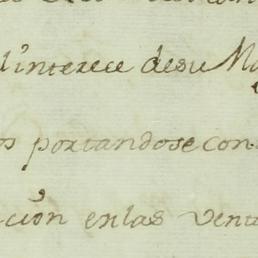 l'interece desu
portandose con
cion enlas vent